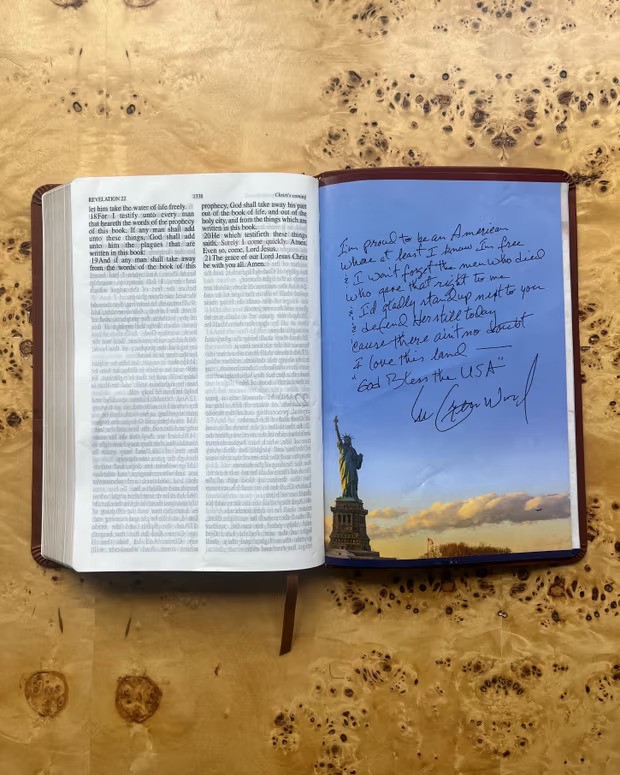 REVELATION 22 1338 Christ's coming
let him take the water of life freely.
18For I testify unto every man
that heareth the words of the prophecy
of this book, If any man shall add
unto these things, God shall add
unto him the plagues that are
written in this book:
19And if any man shall take away
from the words of the book of this
prophecy, God shall take away his part
out of the book of life, and out of the
holy city, and from the things which are
written in this book.
20He which testifieth these things
saith, Surely I come quickly. Amen.
Even so, come, Lord Jesus.
21The grace of our Lord Jesus Christ
be with you all. Amen.
I'm proud to be an American
where at least I know I'm free
& I won't forget the men who died
who gave that right to me
& I'd gladly stand up next to you
& defend Her still today
'cause there ain't no doubt
I love this land —
"God Bless the USA"
Lee Greenwood